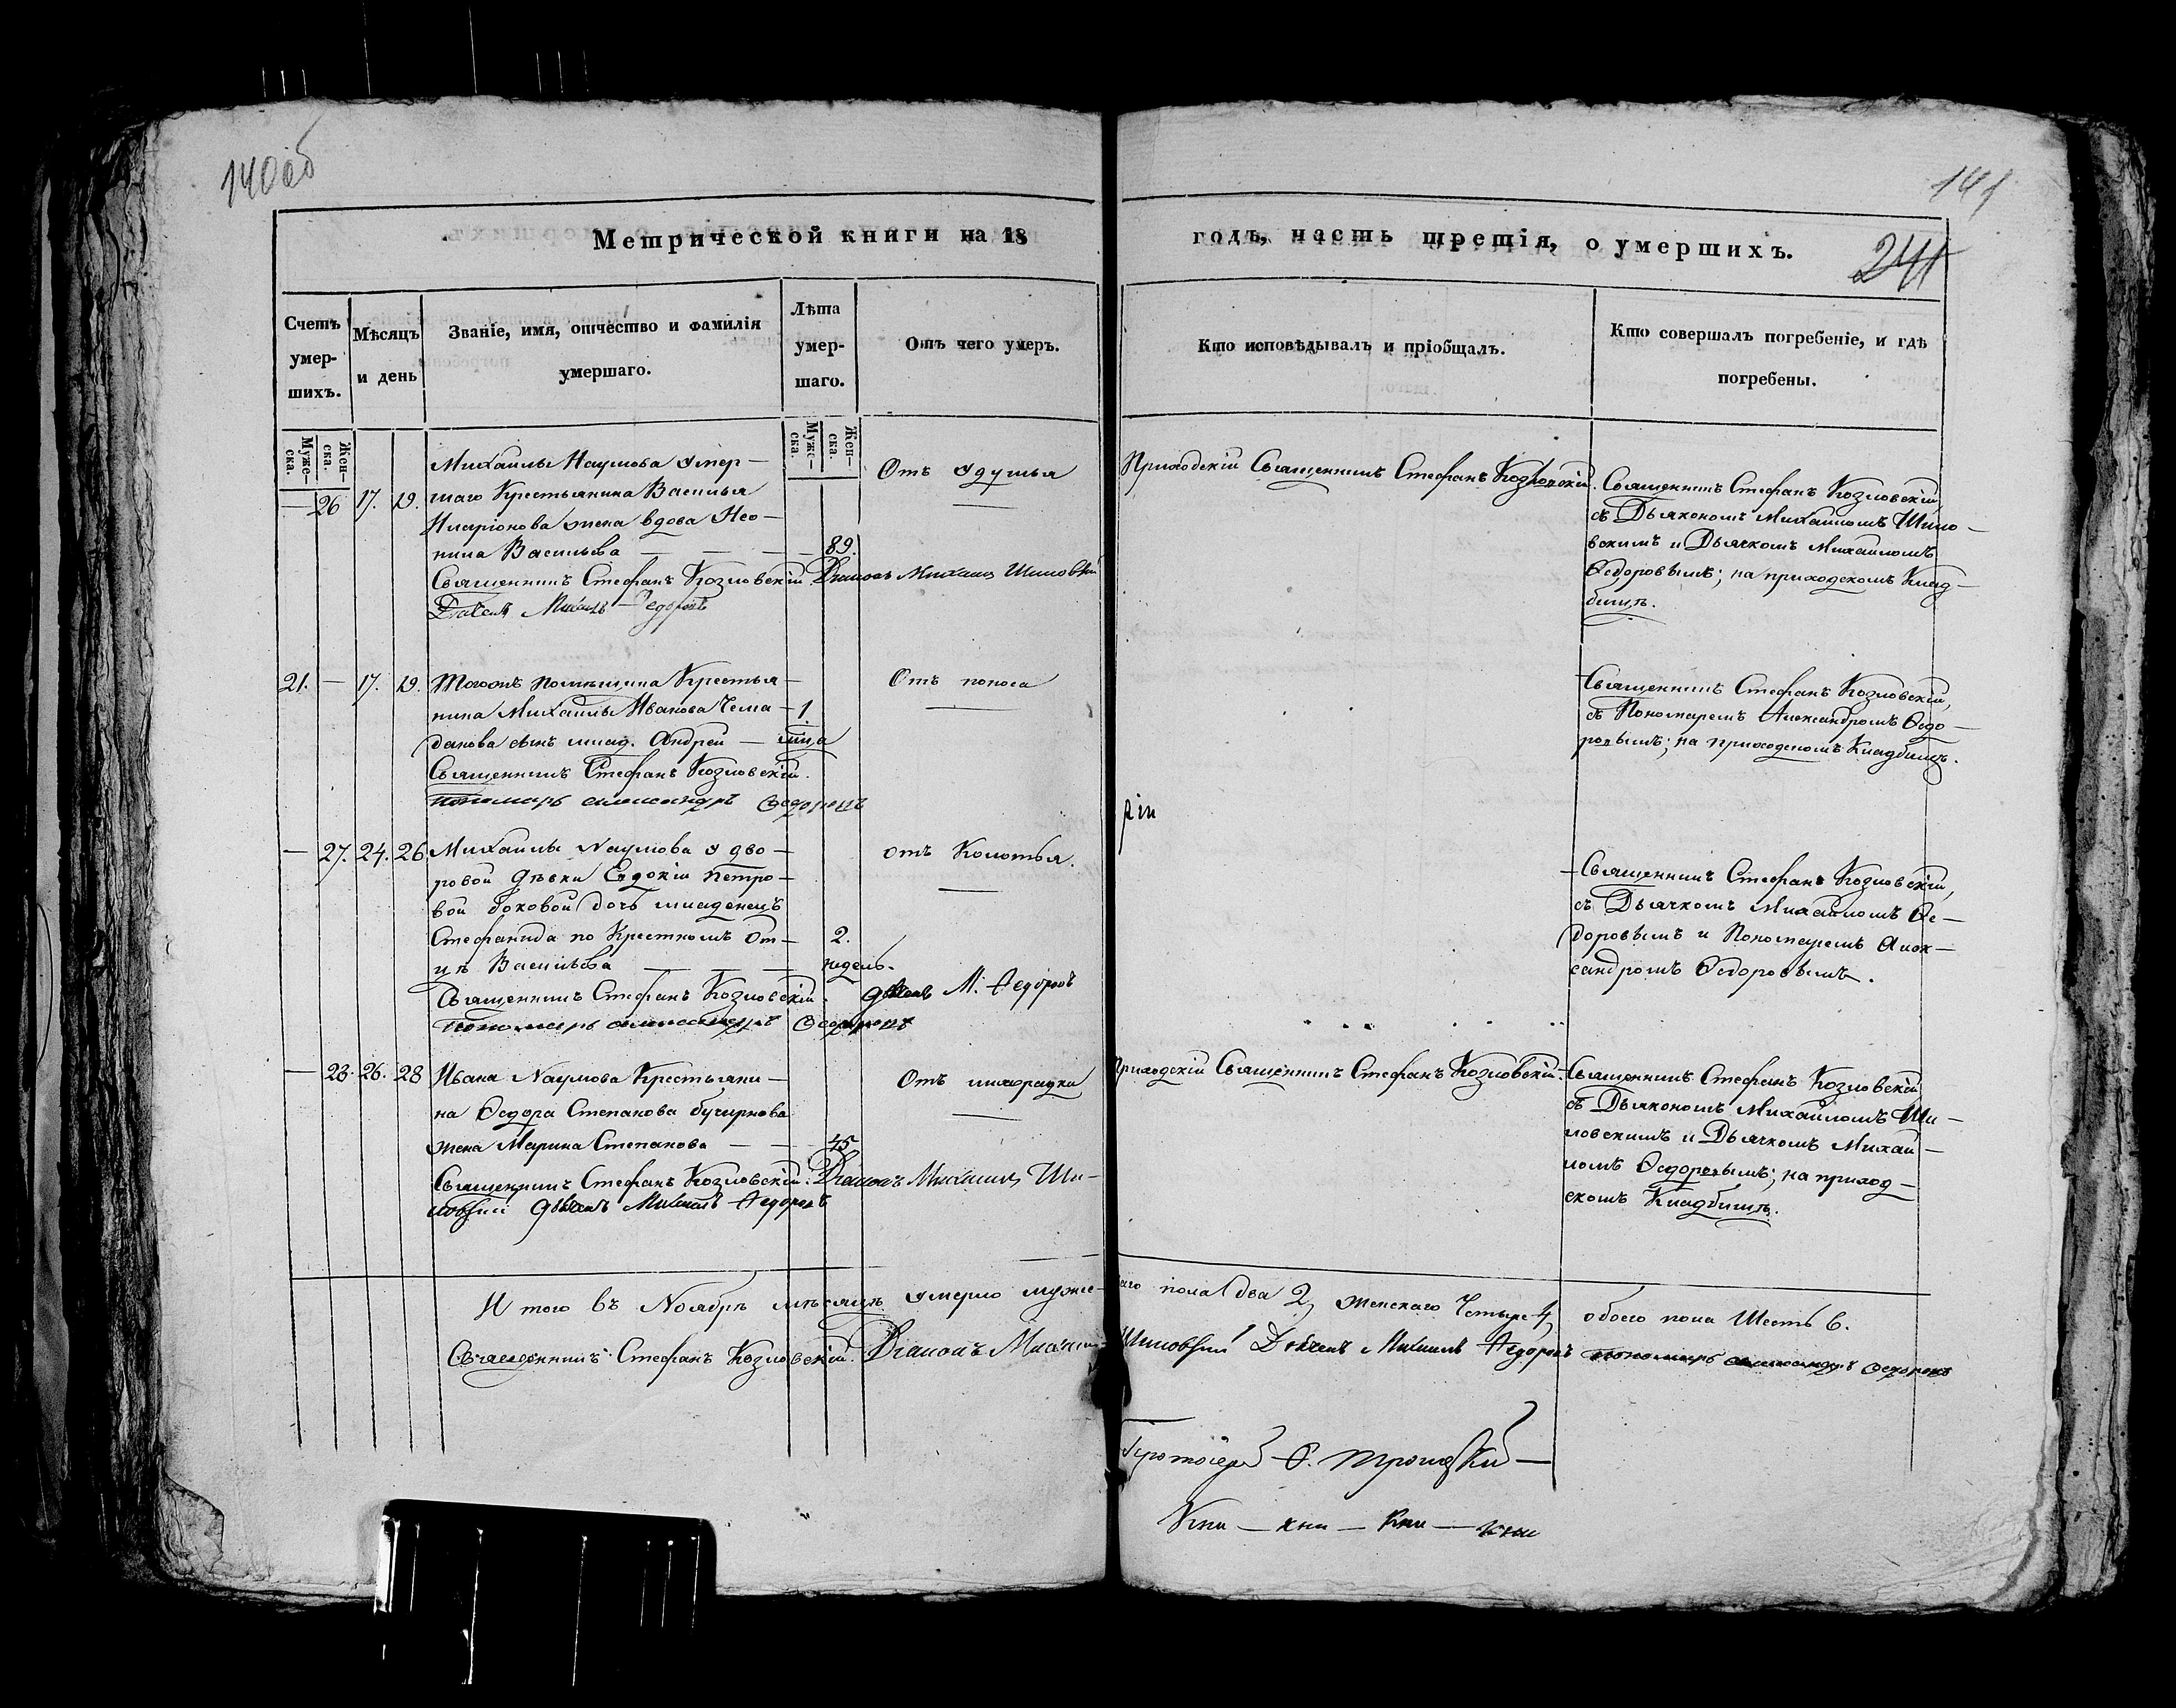 140 об
141
241
Метрической книги на 18 годъ, часть третія, о умершихъ.
Счетъ умер- шихъ.
Мѣсяцъ и день
Званіе, имя, отчество и фамилія умершаго.
Лѣта умер- шаго.
Отъ чего умеръ.
Кто исповѣдывалъ и пріобщалъ.
Кто совершалъ погребеніе, и гдѣ погребены.
Муже- ска.
Жен- ска.
Муже- ска.
Жен- ска.
— 26 17. 19.
Михаилы Наумова умер-
шаго Крестьянина Василья
Иларіонова жена вдова Нео-
нила Васильева — — — 89.
Священникъ Стефанъ Козловскій. Діаконъ Михаилъ Шиловскій
Дьячекъ Михаилъ Федоровъ
Отъ удушья
Приходскій Священникъ Стефанъ Козловскій.
Священникъ Стефанъ Козловскій,
съ Дьякономъ Михаиломъ Шило-
вскимъ и Дьячкомъ Михаиломъ
Ѳедоровымъ; на приходскомъ Клад-
бищѣ.
21. — 17. 19.
Тогожъ помѣщика Крестья-
нина Михаилы Иванова Чема- 1.
данова сынъ млад. Андрей —
Священникъ Стефанъ Козловскій.
Пономарь Александръ Ѳедоровъ
Отъ поноса
Священникъ Стефанъ Козловскій,
съ Пономаремъ Александромъ Ѳедо-
ровымъ; на приходскомъ Кладбищѣ.
— 27. 24. 26.
Михаилы Наумова у дво-
ровой дѣвки Евдокіи Петро-
вой боковой дочь младенецъ
Стефанида по Крестномъ От- 2.
цѣ Васильева — — — недель.
Священникъ Стефанъ Козловскій. дьячекъ М. Федоровъ
Пономарь Александръ Ѳедоровъ
отъ Колотья.
Священникъ Стефанъ Козловскій,
съ Дьячкомъ Михаиломъ Ѳе-
доровымъ и Пономаремъ Алек-
сандромъ Ѳедоровымъ.
— 28. 26. 28
Ивана Наумова Крестьяни-
на Ѳедора Степанова
жена Марина Степанова — — 45
Священникъ Стефанъ Козловскій. Діаконъ Михаилъ Ши-
ловскій дьячекъ Михаилъ Федоровъ
Отъ лихорадки
Приходскій Священникъ Стефанъ Козловскій.
Священникъ Стефанъ Козловскій
съ Дьякономъ Михаиломъ Ши-
ловскимъ и Дьячкомъ Михаи-
ломъ Ѳедоровымъ; на приход-
скомъ Кладбищѣ.
И того въ Ноябрѣ мѣсяцѣ умерло муже- каго пола два 2, женскаго Четыре 4, обоего пола Шесть 6.
Священникъ Стефанъ Козловскій. Діаконъ Михаилъ Шиловскій Дьячекъ Михаилъ Федоровъ Пономарь Александръ Ѳедоровъ
Протоіерей Ѳ. Троицкій —
Кни — кни — Кни — кни